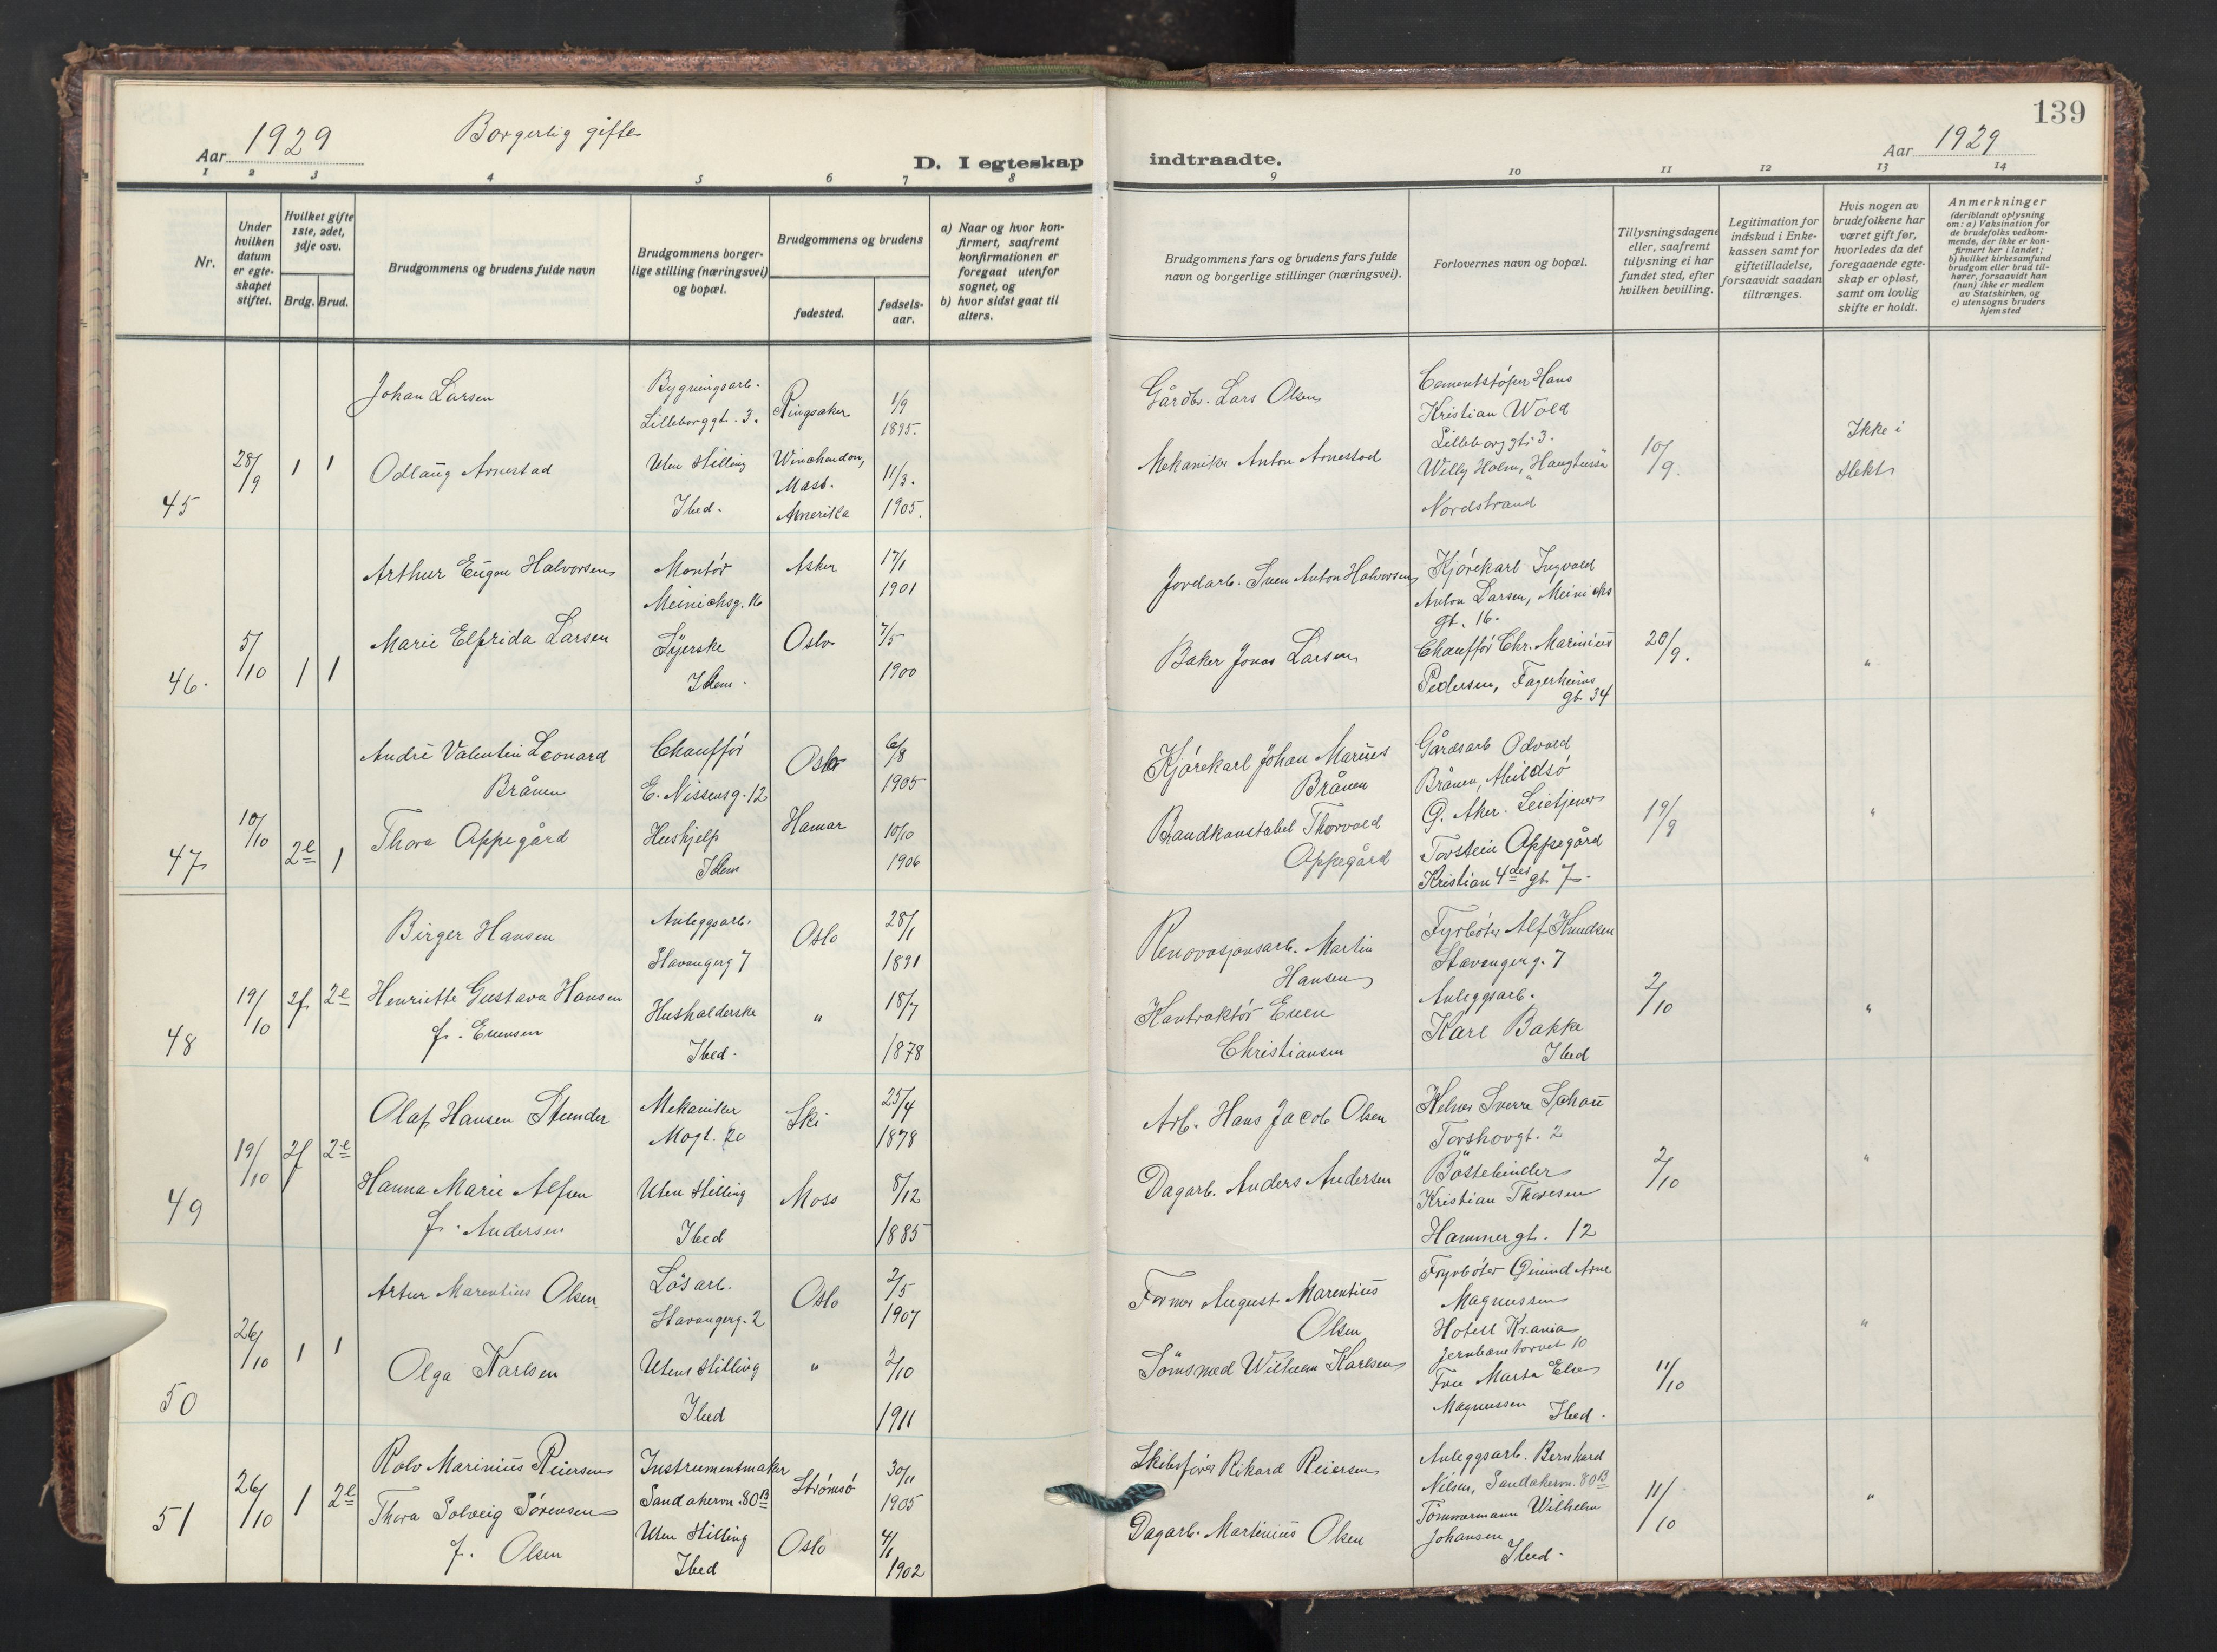 139
Aar 1929
Borgerlig gifte
D. I egteskap
indtraadte.
Aar 1929
1 2 3 4 5 6 7 8
9 10 11 12 13 14
Nr.
Under hvilken datum er egteskapet stiftet.
Hvilket gifte 1ste, 2det, 3dje osv.
Brdg. Brud.
Brudgommens og brudens fulde navn
Brudgommens borgerlige stilling (næringsvei) og bopæl.
Brudgommens og brudens
fødested.
fødselsaar.
a) Naar og hvor konfirmert, saafremt konfirmationen er foregaat utenfor sognet, og
b) hvor sidst gaat til alters.
Brudgommens fars og brudens fars fulde navn og borgerlige stillinger (næringsvei).
Forlovernes navn og bopæl.
Tillysningsdagene eller, saafremt tillysning ei har fundet sted, efter hvilken bevilling.
Legitimation for indskud i Enkekassen samt for giftetilladelse, forsaavidt saadan tiltrænges.
Hvis nogen av brudefolkene har været gift før, hvorledes da det foregaaende egteskap er opløst, samt om lovlig skifte er holdt.
Anmerkninger
(deriblandt oplysning om: a) Vaksination for de brudefolks vedkommende, der ikke er konfirmert her i landet; b) hvilket kirkesamfund brudgom eller brud tilhører, forsaavidt han (hun) ikke er medlem av Statskirken, og c) utensogns bruders hjemsted
45
28/9
1 1
Johan Larsen
Bygningsarb.
Lilleborggt. 3.
Ringsaker
1/9
1895.
Odlaug Arnestad
Uten stilling
Ibed.
Winchendon,
Mass.
Amerika
11/3.
1905.
Gårdbr. Lars Olsen
Mekaniker Anton Arnestad
Cementstøper Hans
Kristian Wold
Lilleborggt. 3.
Willy Holm, "Haugtussa"
Nordstrand
10/9.
Ikke i
slekt
46.
5/10
1 1
Arthur Eugen Halvorsen
Montør
Meinichsg. 16
Asker
17/1
1901
Marie Elfrida Larsen
Syerske
Idem.
Oslo
7/5
1900
Jordarb. Sven Anton Halvorsen
Baker Jonas Larsen
Kjørekarl Ingvald
Anton Larsen, Meinichs
gt. 16.
Chauffør Chr. Marinius
Pedersen, Fagerheims
gt. 34
20/9.
"
47
10/10
2e 1
André Valentin Leonard
Brånen
Chauffør
E. Nissensg. 12
Oslo
6/8
1905
Thora Oppegård
Hushjelp
Idem
Hamar
10/10
1906
Kjørekarl Johan Marius
Brånen
Brandkonstabel Thorvald
Oppegård
Gårdsarb Odvald
Brånen, Mildsø
Ø. Aker. Leietjener
Torstein Oppegård
Kristian 4des gt. 7.
19/9
"
48
19/10
2f 2e
Birger Hansen
Anleggsarb.
Stavangerg 7
Oslo
28/1
1891
Henriette Gustava Hansen
f. Evensen
Husholderske
Ibed.
"
18/7
1878
Renovasjonsarb. Martin
Hansen
Kontraktør Even
Christiansen
Fyrbøter Alf Knudsen
Stavangerg. 7
Anleggsarb.
Karl Bakke
Ibed
2/10
"
49
19/10
2f 2e
Olaf Hansen Stunder
Mekaniker
Mogt. 20
Ski
25/4
1878
Hanna Marie Alfsen
f. Andersen
Uten stilling
Ibed
Moss
8/12
1885
Arb. Hans Jacob Olsen
Dagarb. Anders Andersen
Kelner Sverre Schau
Torshovgt. 2
Børstebinder
Kristian Thoresen
Hammergt. 12
2/10
"
50
26/10
1 1
Artur Marentius Olsen
Løsarb.
Stavangerg. 2
Oslo
2/5
1907
Olga Karlsen
Uten stilling
Ibed
"
2/10
1911
Former August Marentius
Olsen
Sømsmed Wilhelm Karlsen
Fyrbøter Øivind Arne
Magnussen
Hotell Kr.ania
Jernbanetorvet 10
Fru Marta Elise
Magnussen
Ibed.
11/10
"
51
26/10
1 2e
Rolv Marinius Reiersen
Instrumentmaker
Sandakervn. 80B
Strømsø
30/11
1905
Thora Solveig Sørensen
f. Olsen
Uten stilling
Ibed
Oslo
4/1
1902
Skibsfører Rikard Reiersen
Dagarb. Martinius Olsen
Anleggsarb. Bernhard
Nilsen, Sandakervn. 80B
Tømmermann Wilhelm
Johansen
Ibed.
11/10
"